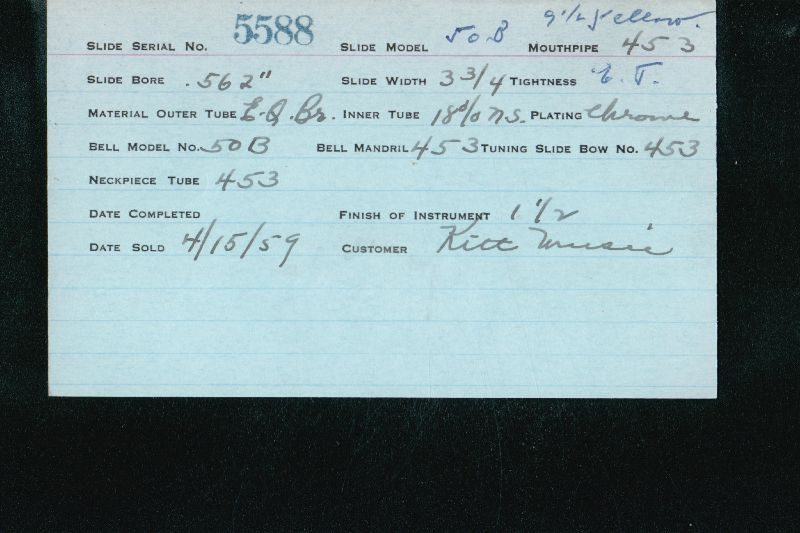 9 1/2 yellow.
SLIDE SERIAL NO. 5588 SLIDE MODEL 50B MOUTHPIPE 453
SLIDE BORE .562" SLIDE WIDTH 3 3/4 TIGHTNESS E.T.
MATERIAL OUTER TUBE E.Q.Br. INNER TUBE 18% N.S. PLATING Chrome
BELL MODEL NO. 50B BELL MANDRIL 453 TUNING SLIDE BOW NO. 453
NECKPIECE TUBE 453
DATE COMPLETED FINISH OF INSTRUMENT 1 1/2
DATE SOLD 4/15/59 CUSTOMER Kitt Music